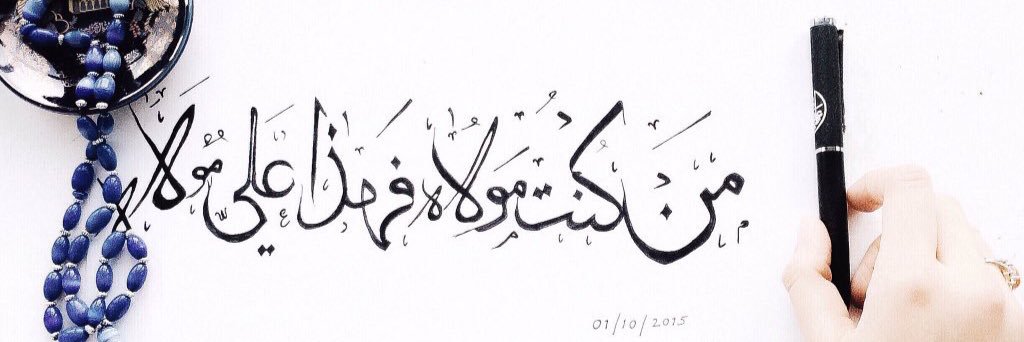 من كنت مولاه فهذا علي مولاه
01/10/2015